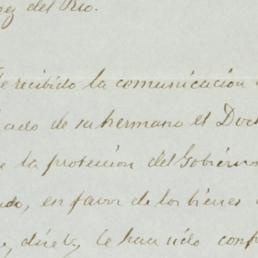 pez del Rio.
e recibido la comunicacion
ado de su hermano el Doct
e la protecion del Gobierno
do, en favor de los bienes
le han sido conf